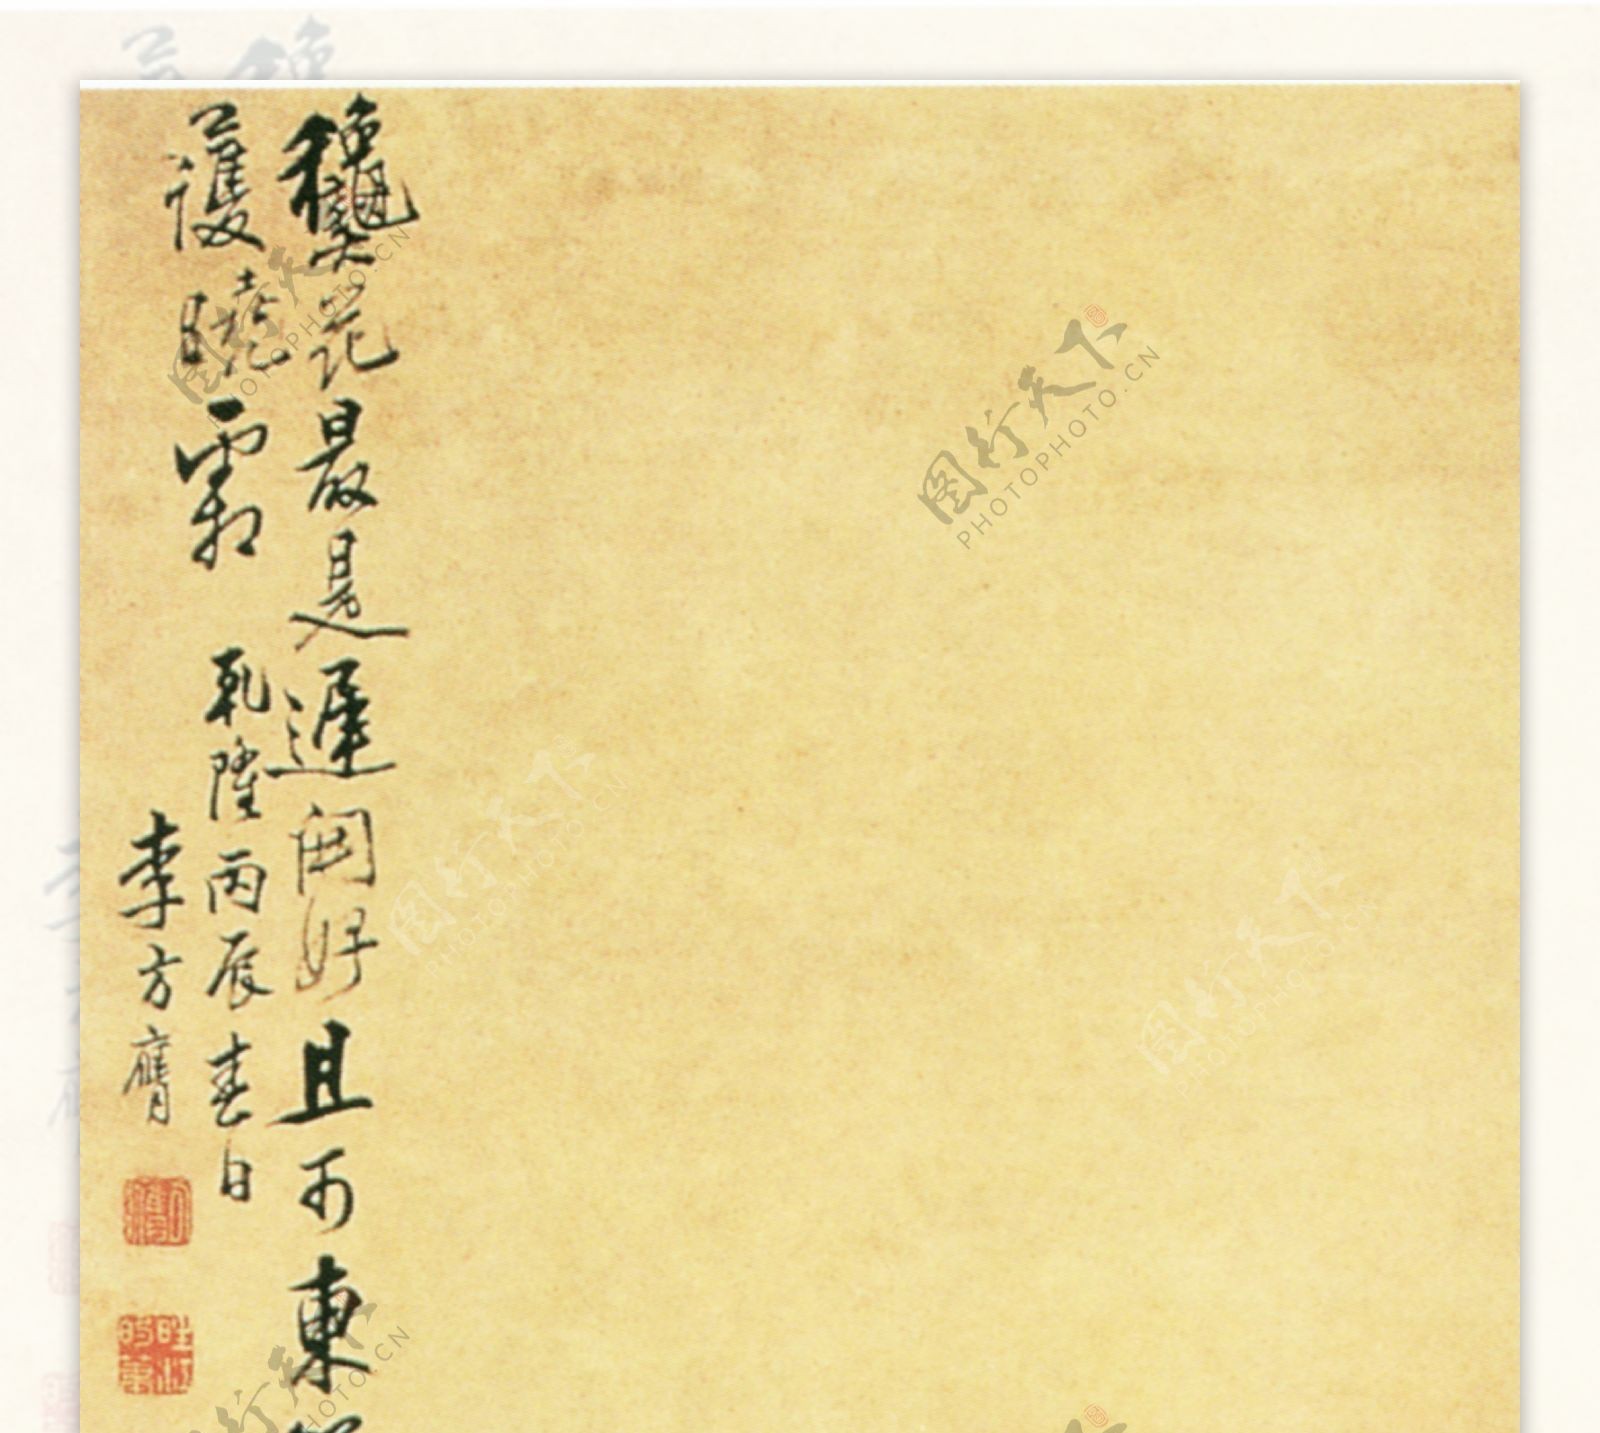 龝花最是遲開好且可東
護曉霜 乾隆丙辰春日
李方膺
图行天下
PHOTOPHOTO.CN
图行天下
PHOTOPHOTO.CN
图行天下
PHOTOPHOTO.CN
图行天下
PHOTOPHOTO.CN